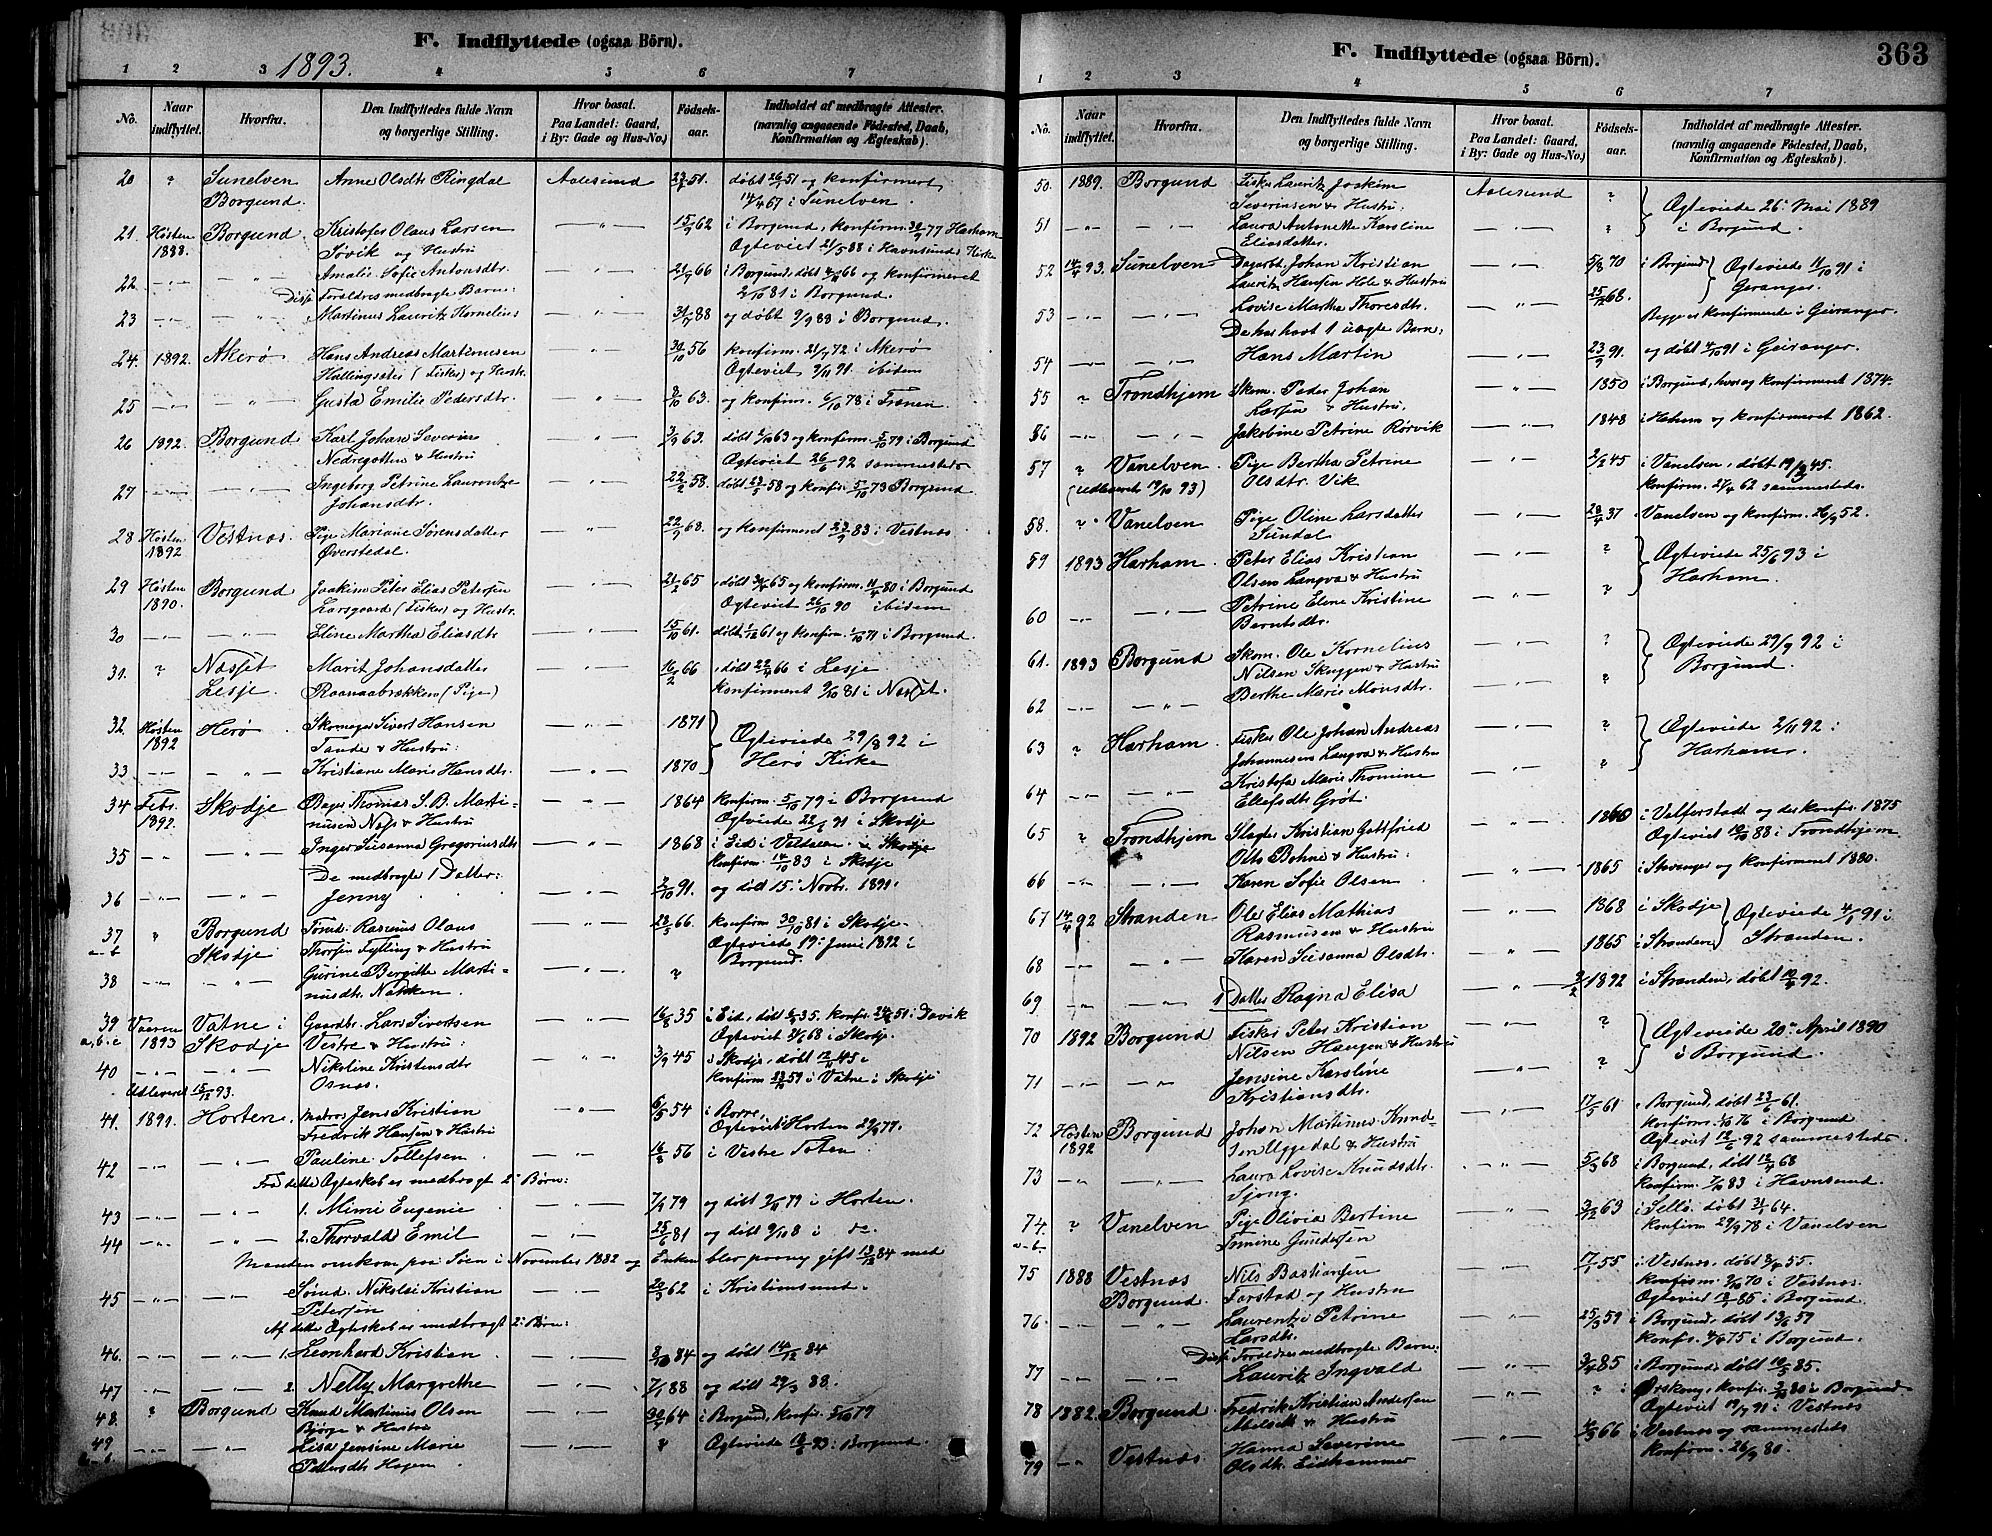 F. Indflyttede (ogsaa Börn).
1893.
1 2 3 4 5 6 7
No. Naar indflyttet. Hvorfra. Den Indflyttedes fulde Navn og borgerlige Stilling. Hvor bosat. Paa Landet: Gaard, i By: Gade og Hus-No.) Fødselsaar. Indholdet af medbragte Attester. (navnlig angaaende Födested, Daab, Konfirmation og Ægteskab).
20 " Sunelven Anne Olsdtr Ringdal Aalesund 51. døbt 26/5 51 og konfirmeret
Borgund. 14/4 67 i Sunelven.
21. Høsten Borgund Kristofer Olaus Larsen 15/7 62 i Borgund, konfirm. 30/9 77 Harham
1888. Søvik og Hustru Ægteviet 21/5 88 i Havnsunds Kirke
22. Amalie Sofie Antonsdtr. 66 i Borgund, døbt 66 og konfirmeret
Disse Forældres medbragte Barn: 2/10 81 i Borgund.
23 Martinus Lauritz Kornelius 88 og døbt 9/9 88 i Borgund.
24. 1892. Akerø Hans Andreas Martinusen 30/10 56 konfirm. 72 i Akerø
Hallingsæter (Fisker) og Hustr. Ægteviet 91. ibidem
25 Gusta Emilie Pedersdtr. 63. og konfirm. 6/10 78 i Frænen.
26 1892. Borgund Karl Johan Severin 63. døbt 63 og konfirm. 5/10 79 i Borgund
Nedregotten & Hustru Ægteviet 26/6 92 sammesteds
27 Ingeborg Petrine Laurentze 22/2 58. døbt 58 og konfir. 5/10 73 Borgund
Johansdtr.
28 Høsten Vestnæs. Pige Mariane Sørensdatter 22/9 68. og konfirmeret 23/9 83 i Vestnæs
1892 Øverstedal.
29 Høsten Borgund Joakim Peter Elias Petersen 21/2 65 døbt 65 og konfirm. 11/4 80 i Borgund
1890. Larsgaard (Fisker) og Hustr. Ægteviet 26/10 90 ibidem
30 Eline Martha Eliasdtr 15/10 61. døbt 61 og konfirm. 1/10 77 i Borgund.
31. " Næsset Marit Johansdatter 16/2 66 døbt 22/4 66 i Lesje
Lesje. (Pige) konfirmeret 9/10 81 i Næsset.
32. Høsten Herø Skomager Sivert Hansen 1871 Ægteviede 29/8 92 i
1892 Tande & Hustru: Herø Kirke
33 Kristiane Marie Hansdtr. 1870
34 Febr. Skodje Bager Thomas S. B. Marti- 1864 konfirm. 5/10 79 i Borgund
1892. nusen Næss & Hustru Ægteviede 91 i Skodje
35 Inger Susanna Gregoriusdtr 1868 i Eid i Veldalen Skodje
De medbragte 1 Datter: konfirm. 14/10 83 i Skodje
36 Jenny 91. og døbt 15. Novbr. 1891.
37 " Borgund Tømd. Rasmus Olaus 66 konfirm 30/10 81 i Skodje.
a-b Skodje Thorsen Fylling & Hustru Ægteviede 19. Juni 1892 i
38 Gurine Bergitte Marti- " Borgund.
nusdtr. Nakken.
39 Vaaren Vatne i Gaardbr. Lars Sivertsen 16/8 35 i Eid, døbt 35. konfir. 51 i Davik
a, b. c 1893 Skodje Vestre & Hustru: Ægteviet 68 i Skodje.
40 Nikoline Kristensdtr 3/9 45 i Skodje, døbt 12/10 45 i
Osnæs. konfirm. 23/10 59 i Vatne i Skodje
Udleveret 15/12 93.
41. 1891. Horten. Matros Jens Kristian 6/5 54 i Borre.
Fredrik Hansen & Hustru Ægteviet i Horten 77.
42 Pauline Tollefsen 56 i Vestre Toten.
Fra dette Ægteskab er medbragt 2 Børn:
43 1. Mimi Eugenie 79 og døbt 79 i Horten.
44 2. Thorvald Emil 25/6 81 og døbt 9/10 8 i do.
Manden omkom paa Søen i November 1882 og Enken blev paany gift 84 med
45 Sømd. Nikolai Kristian 62 i Kristiansund.
Petersen
Af dette Ægteskab er medbragt 2 Børn:
46. 1. Leonhard Kristian 8/10 84 og døbt 14/12 84
47 2. Nelly Margrethe 88 og døbt 29/3 88.
48. " Borgund Knud Martinus Olsen 64 i Borgund, konfir. 5/10 79
Bjørge & Hustru
49 Lisa Jensine Marie " Ægteviede 93 i Borgund.
Pettersdtr Hagen
F. Indflyttede (ogsaa Börn).
363
1 2 3 4 5 6 7
No. Naar indflyttet. Hvorfra. Den Indflyttedes fulde Navn og borgerlige Stilling. Hvor bosat. Paa Landet: Gaard, i By: Gade og Hus-No.) Fødselsaar. Indholdet af medbragte Attester. (navnlig angaaende Födested, Daab, Konfirmation og Ægteskab).
50. 1889. Borgund Fisker Lauritz Joakim Aalesund " Ægteviede 26. Mai 1889
Severinsen & Hustru i Borgund.
51 Laura Antonette Karoline "
Eliasdatter.
52 93. Sunelven Dagarbd. Johan Kristian 5/8 70 i Borgund Ægteviede 11/10 91 i
Lauritz Hansen Hole & Hustru Geranger.
53 Lovise Martha Thoresdtr. 25/12 68. Begge er konfirmerede i Geiranger.
De har havt 1 uægte Barn:
54 Hans Martin 23/9 91. og døbt 4/10 91 i Geiranger.
55 " Trondhjem Skom. Peder Johan 1850 i Borgund, hvor og konfirmeret 1874.
Larsen & Hustru,
56 Jakobine Petrine Rørvik 1848 i Harham og konfirmeret 1862.
57 " Vanelven Pige Bertha Petrine 2/2 45 i Vanelven, døbt 19/3 45.
(Udleveret 19/10 93) Olsdtr. Vik konfirm. 27/4 62 sammesteds.
58. " Vanelven Pige Oline Larsdatter 37 Vanelven og konfirm. 52.
Sundal
59 1893 Harham. Peter Elias Kristian " Ægteviede 25/6 93 i
Olsen Langva & Hustru Harham.
60 Petrine Eline Kristine "
Berntsdtr.
61. 1893 Borgund Skom. Ole Kornelius " Ægteviede 29/9 92 i
Nilsen Skuggen & Hustru Borgund.
62 Berthe Marie Monsdtr. "
63 " Harham. Fisker Ole Johan Andreas " Ægteviede 2/11 92 i
Johannesen Langva & Hustru Harham.
64 Kristofa Marie Thomine "
Ellefsdtr Grøt.
65 " Trondhjem Slagter Kristian Gottfried 1860 i og der konfir. 1875
Otto Bohne & Hustru: Ægteviet 88 i Trondhjem
66 Karen Sofie Olsen 1865 i Stavanger og konfirmeret 1880.
67 14/4 92 Stranden Ole Elias Mathias 1868 i Skodje Ægteviede 91 i
Rasmusen & Hustru Stranden.
68 Karen Susanna Olsdtr. 1865 i Stranden
69 1 Datter Ragna Elisa 1892 i Stranden, døbt 92.
70 1892 Borgund Fisker Peter Kristian " Ægteviede 20. April 1890
Nilsen Haugen & Hustru i Borgund.
71 Jensine Karoline "
Kristiansdtr.
72 Høsten Borgund Johan Martinus Knud- 17/5 61 i Borgund, døbt 23/6 61.
1892 sen Uggedal & Hustru konfirm. 1/10 76 i Borgund
Ægteviet 12/6 92 sammesteds.
73 Laura Lovise Knudsdtr. 5/3 68 i Borgund, døbt 12/4 68
Sjong. konfirm. 7/10 83 i Havnsund.
74. " Vanelven Pige Olivia Bertine 63 i Selø. døbt 64.
a-b Gundersen konfirm 29/9 78 i Vanelven
75 1888 Vestnæs Nils Bastiansen 55 i Vestnæs, døbt 55.
Borgund. Farstad og Hustru konfir. 70 i Vestnæs.
Ægteviet 85 i Borgund.
76 Laurentze Petrine 25/3 59 i Borgund, døbt 13/6 59
Larsdtr. konfir. 75 i Borgund.
Disse Forældres medbragte Barn:
77 Lauritz Ingvald 85 i Borgund, døbt 85.
78 1882. Borgund Fredrik Kristian Andersen " i Ørskoug, konfir. 80 i Borgund
Abelseth & Hustru Ægteviet 91 i Vestnæs
79 Vestnæs Hanna Severine 66 i Vestnæs og sammesteds
Olsdtr. Eidhammer konfirm. 80.